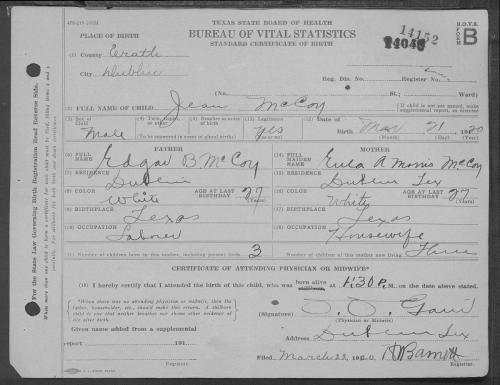 TEXAS STATE BOARD OF HEALTH
BUREAU OF VITAL STATISTICS
STANDARD CERTIFICATE OF BIRTH
14152
B.O.V.S. FORM B
PLACE OF BIRTH
(1) County Erath
City Dublin
Reg. Dis. No. Register No.
(No. St.; Ward)
(2) FULL NAME OF CHILD Jean McCoy
(If child is not yet named, make supplemental report, as directed)
(3) Sex of Child Male
(4) Twin, triplet, or other?
(To be answered in event of plural births only)
(12) Legitimate? Yes
(13) Date of Birth Mar 21 1920
(Month) (Day) (Year)
FATHER MOTHER
(6) FULL NAME Edgar B McCoy (14) FULL MAIDEN NAME Eula A Morris McCoy
(7) RESIDENCE Dublin RESIDENCE Dublin Tex
(8) COLOR White AGE AT LAST BIRTHDAY 27 (Years) COLOR White AGE AT LAST BIRTHDAY 27 (Years)
BIRTHPLACE Texas BIRTHPLACE Texas
OCCUPATION Laborer OCCUPATION Housewife
Number of children born to this mother, including present birth 3 Number of children of this mother now living Three
CERTIFICATE OF ATTENDING PHYSICIAN OR MIDWIFE*
I hereby certify that I attended the birth of this child, who was born alive at 1:30 P.M. on the date above stated.
(Signature)
(Physician or Midwife)
Address Dublin Tex
Given name added from a supplemental
report 191
Registrar.
Filed March 22, 1920
Registrar.
For the State Law Governing Birth Registration Read Reverse Side.